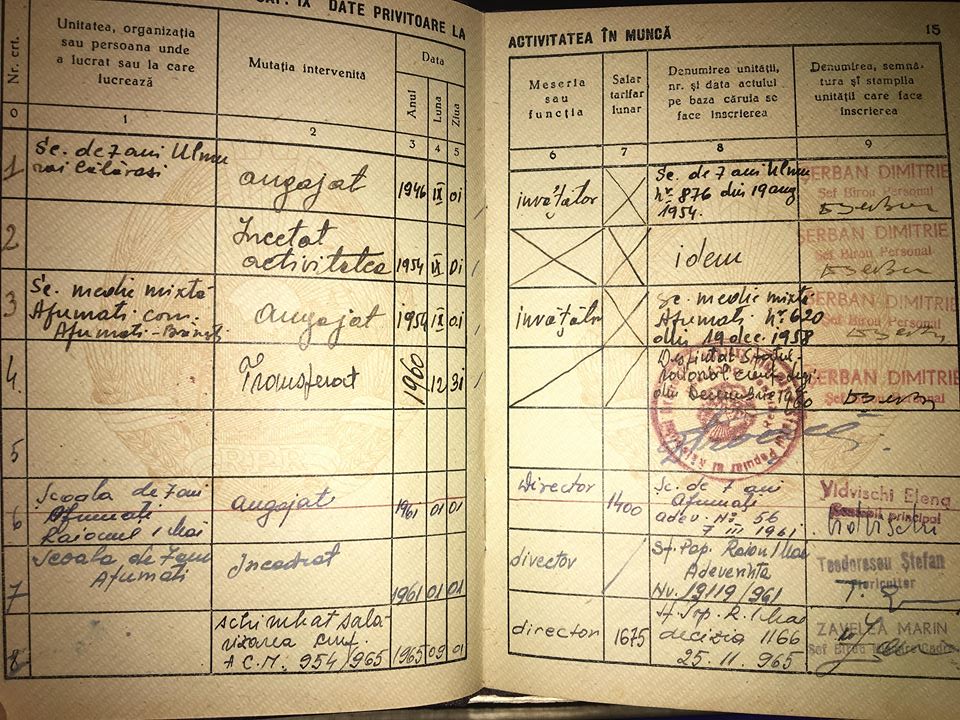 CAP. IX DATE PRIVITOARE LA
ACTIVITATEA ÎN MUNCĂ
15
Nr. crt.
Unitatea, organizația
sau persoana unde
a lucrat sau la care
lucrează
Mutația intervenită
Data
Anul
Luna
Ziua
Meseria
sau
funcția
Salar
tarifar
lunar
Denumirea unității,
nr. și data actului
pe baza căruia se
face înscrierea
Denumirea, semnă-
tura și stampila
unității care face
înscrierea
0 1 2 3 4 5 6 7 8 9
1
Șc. de 7 ani Ulmu
rai Călărași
angajat
1946 IX 01
învățător
Șc. de 7 ani Ulmu
nr. 876 din 19 aug
1954.
ȘERBAN DIMITRIE
Șef Birou Personal
2
Încetat
activitatea
1954 IX 01
idem
ȘERBAN DIMITRIE
Șef Birou Personal
3
Șc. medie mixtă
Afumați com.
Afumați-Brănești
angajat
1954 IX 01
învățător
Șc. medie mixtă
Afumați nr. 620
din 19 dec. 1958
ȘERBAN DIMITRIE
Șef Birou Personal
4.
Transferat
1960 12 31
din Decembrie
ȘERBAN DIMITRIE
Șef Birou Personal
5
RPR
6
Școala de 7 ani
Afumați
Raionul 1 Mai
angajat
1961 01 01
Director
1400
Șc. de 7 ani
Afumați
adev. No. 56
7 III 1961
Vidvischi Elena
principal
7
Școala de 7 ani
Afumați
Încadrat
1961 01 01
director
Sf. Pop. Raion 1 Mai
Adeverința
Nr. 19119/961
Teodorescu Ștefan
8
schimbat sala-
rizarea conf.
A.C.M. 954/965
1965 09 01
director
1675
Sf. Pop. R. 1 Mai
decizia 1166
25. 11. 965
ZAVELCĂ MARIN
Șef Birou